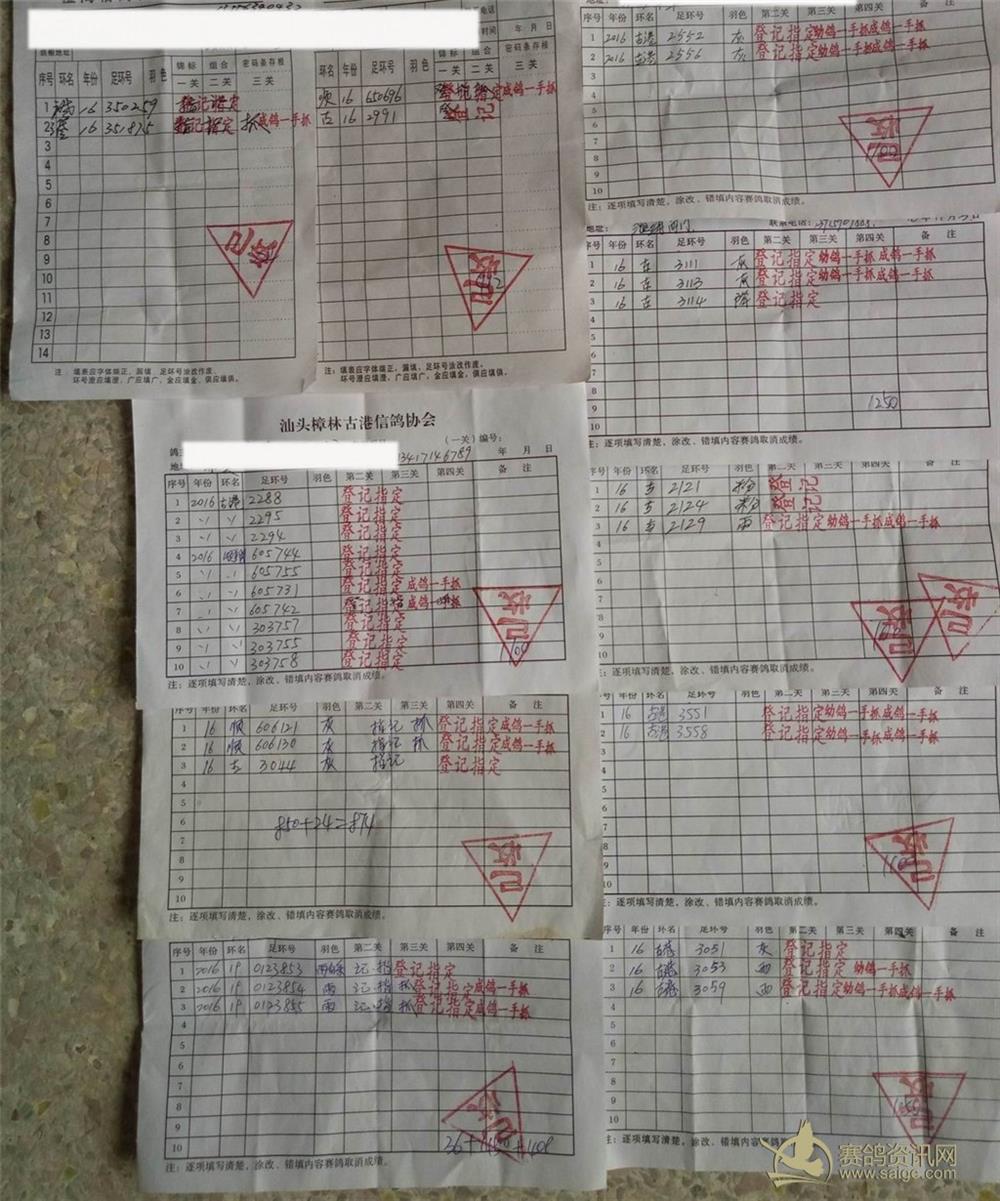 年 月 日
序号 环名 年份 足环号 羽色 锦标 组合 密码条存根
一关 二关 三关
1 16 350259 登记指定
2 16 351875 登记指定 抓 成鸽一手抓
3
4
5
6
7
8
9
10
11
12
13
14
已收
注: 填表应字体端正,漏填、足环号涂改作废。
环号澄应填澄,广应填广,金应填金,俱应填俱。
时间 年 月 日
环名 年份 足环号 羽色 锦标 组合 密码条存根
一关 二关 三关
顺 16 650696 登记指定成鸽一手抓
古 16 2991 登记
已收
注: 填表应字体端正,漏填、足环号涂改作废。
环号澄应填澄,广应填广,金应填金,俱应填俱。
序号 年份 环名 足环号 羽色 第二关 第三关 第四关 备 注
1 2016 古港 2552 灰 登记指定幼鸽一手抓成鸽一手抓
2 2016 古港 2556 灰 登记指定幼鸽一手抓成鸽一手抓
3
4
5
6
7
8
9
10
已收
注:逐项填写清楚,涂改、错填内容赛鸽取消成绩。
地址: 联系电话:
序号 年份 环名 足环号 羽色 第二关 第三关 第四关 备 注
1 16 古 3111 灰 登记指定幼鸽一手抓成鸽一手抓
2 16 古 3113 灰 登记指定幼鸽一手抓成鸽一手抓
3 16 古 3114 登记指定
4
5
6
7
8
9
10
1250
注:逐项填写清楚,涂改、错填内容赛鸽取消成绩。
汕头樟林古港信鸽协会
鸽主 (一关)编号:
13417146789 年 月 日
序号 年份 环名 足环号 羽色 第二关 第三关 第四关 备 注
1 2016 古港 2288 登记指定
2 〃 〃 2295 登记指定
3 〃 〃 2294 登记指定
4 2016 605744 登记指定
5 〃 〃 605755 登记指定
6 〃 〃 605731 登记指定成鸽一手抓
7 〃 〃 605742 登记指定成鸽一手抓
8 〃 〃 303757 登记指定
9 〃 〃 303755 登记指定
10 〃 〃 303758 登记指定
已收
注:逐项填写清楚,涂改、错填内容赛鸽取消成绩。
序号 年份 环名 足环号 羽色 第二关 第三关 第四关 备 注
1 16 古 2121 粉 登记
2 16 古 2124 粉 登记
3 16 古 2129 雨 登记指定幼鸽一手抓成鸽一手抓
4
5
6
7
8
9
10
已收
已收
注:逐项填写清楚,涂改、错填内容赛鸽取消成绩。
序号 年份 环名 足环号 羽色 第二关 第三关 第四关 备 注
1 16 顺 606121 灰 指记 抓 登记指定成鸽一手抓
2 16 顺 606130 灰 指记 抓 登记指定成鸽一手抓
3 16 古 3044 灰 指记 登记指定
4
5
6
7
8
9
10
850+24=874
已收
注:逐项填写清楚,涂改、错填内容赛鸽取消成绩。
序号 年份 环名 足环号 羽色 第二关 第三关 第四关 备 注
1 16 古港 3551 登记指定幼鸽一手抓成鸽一手抓
2 16 古港 3558 登记指定幼鸽一手抓成鸽一手抓
3
4
5
6
7
8
9
10
已收
注:逐项填写清楚,涂改、错填内容赛鸽取消成绩。
序号 年份 环名 足环号 羽色 第二关 第三关 第四关 备 注
1 2016 19 0123853 记.指 登记指定
2 2016 19 0123854 雨 记.指 抓 登记指定成鸽一手抓
3 2016 19 0123855 雨 记.指 抓 登记指定成鸽一手抓
4
5
6
7
8
9
10
注:逐项填写清楚,涂改、错填内容赛鸽取消成绩。
序号 年份 环名 足环号 羽色 第二关 第三关 第四关 备 注
1 16 古港 3051 灰 登记指定
2 16 古港 3053 雨 登记指定 幼鸽一手抓
3 16 古港 3059 雨 登记指定幼鸽一手抓成鸽一手抓
4
5
6
7
8
9
10
已收
注:逐项填写清楚,涂改、错填内容赛鸽取消成绩。
赛鸽资讯网
www.saige.com